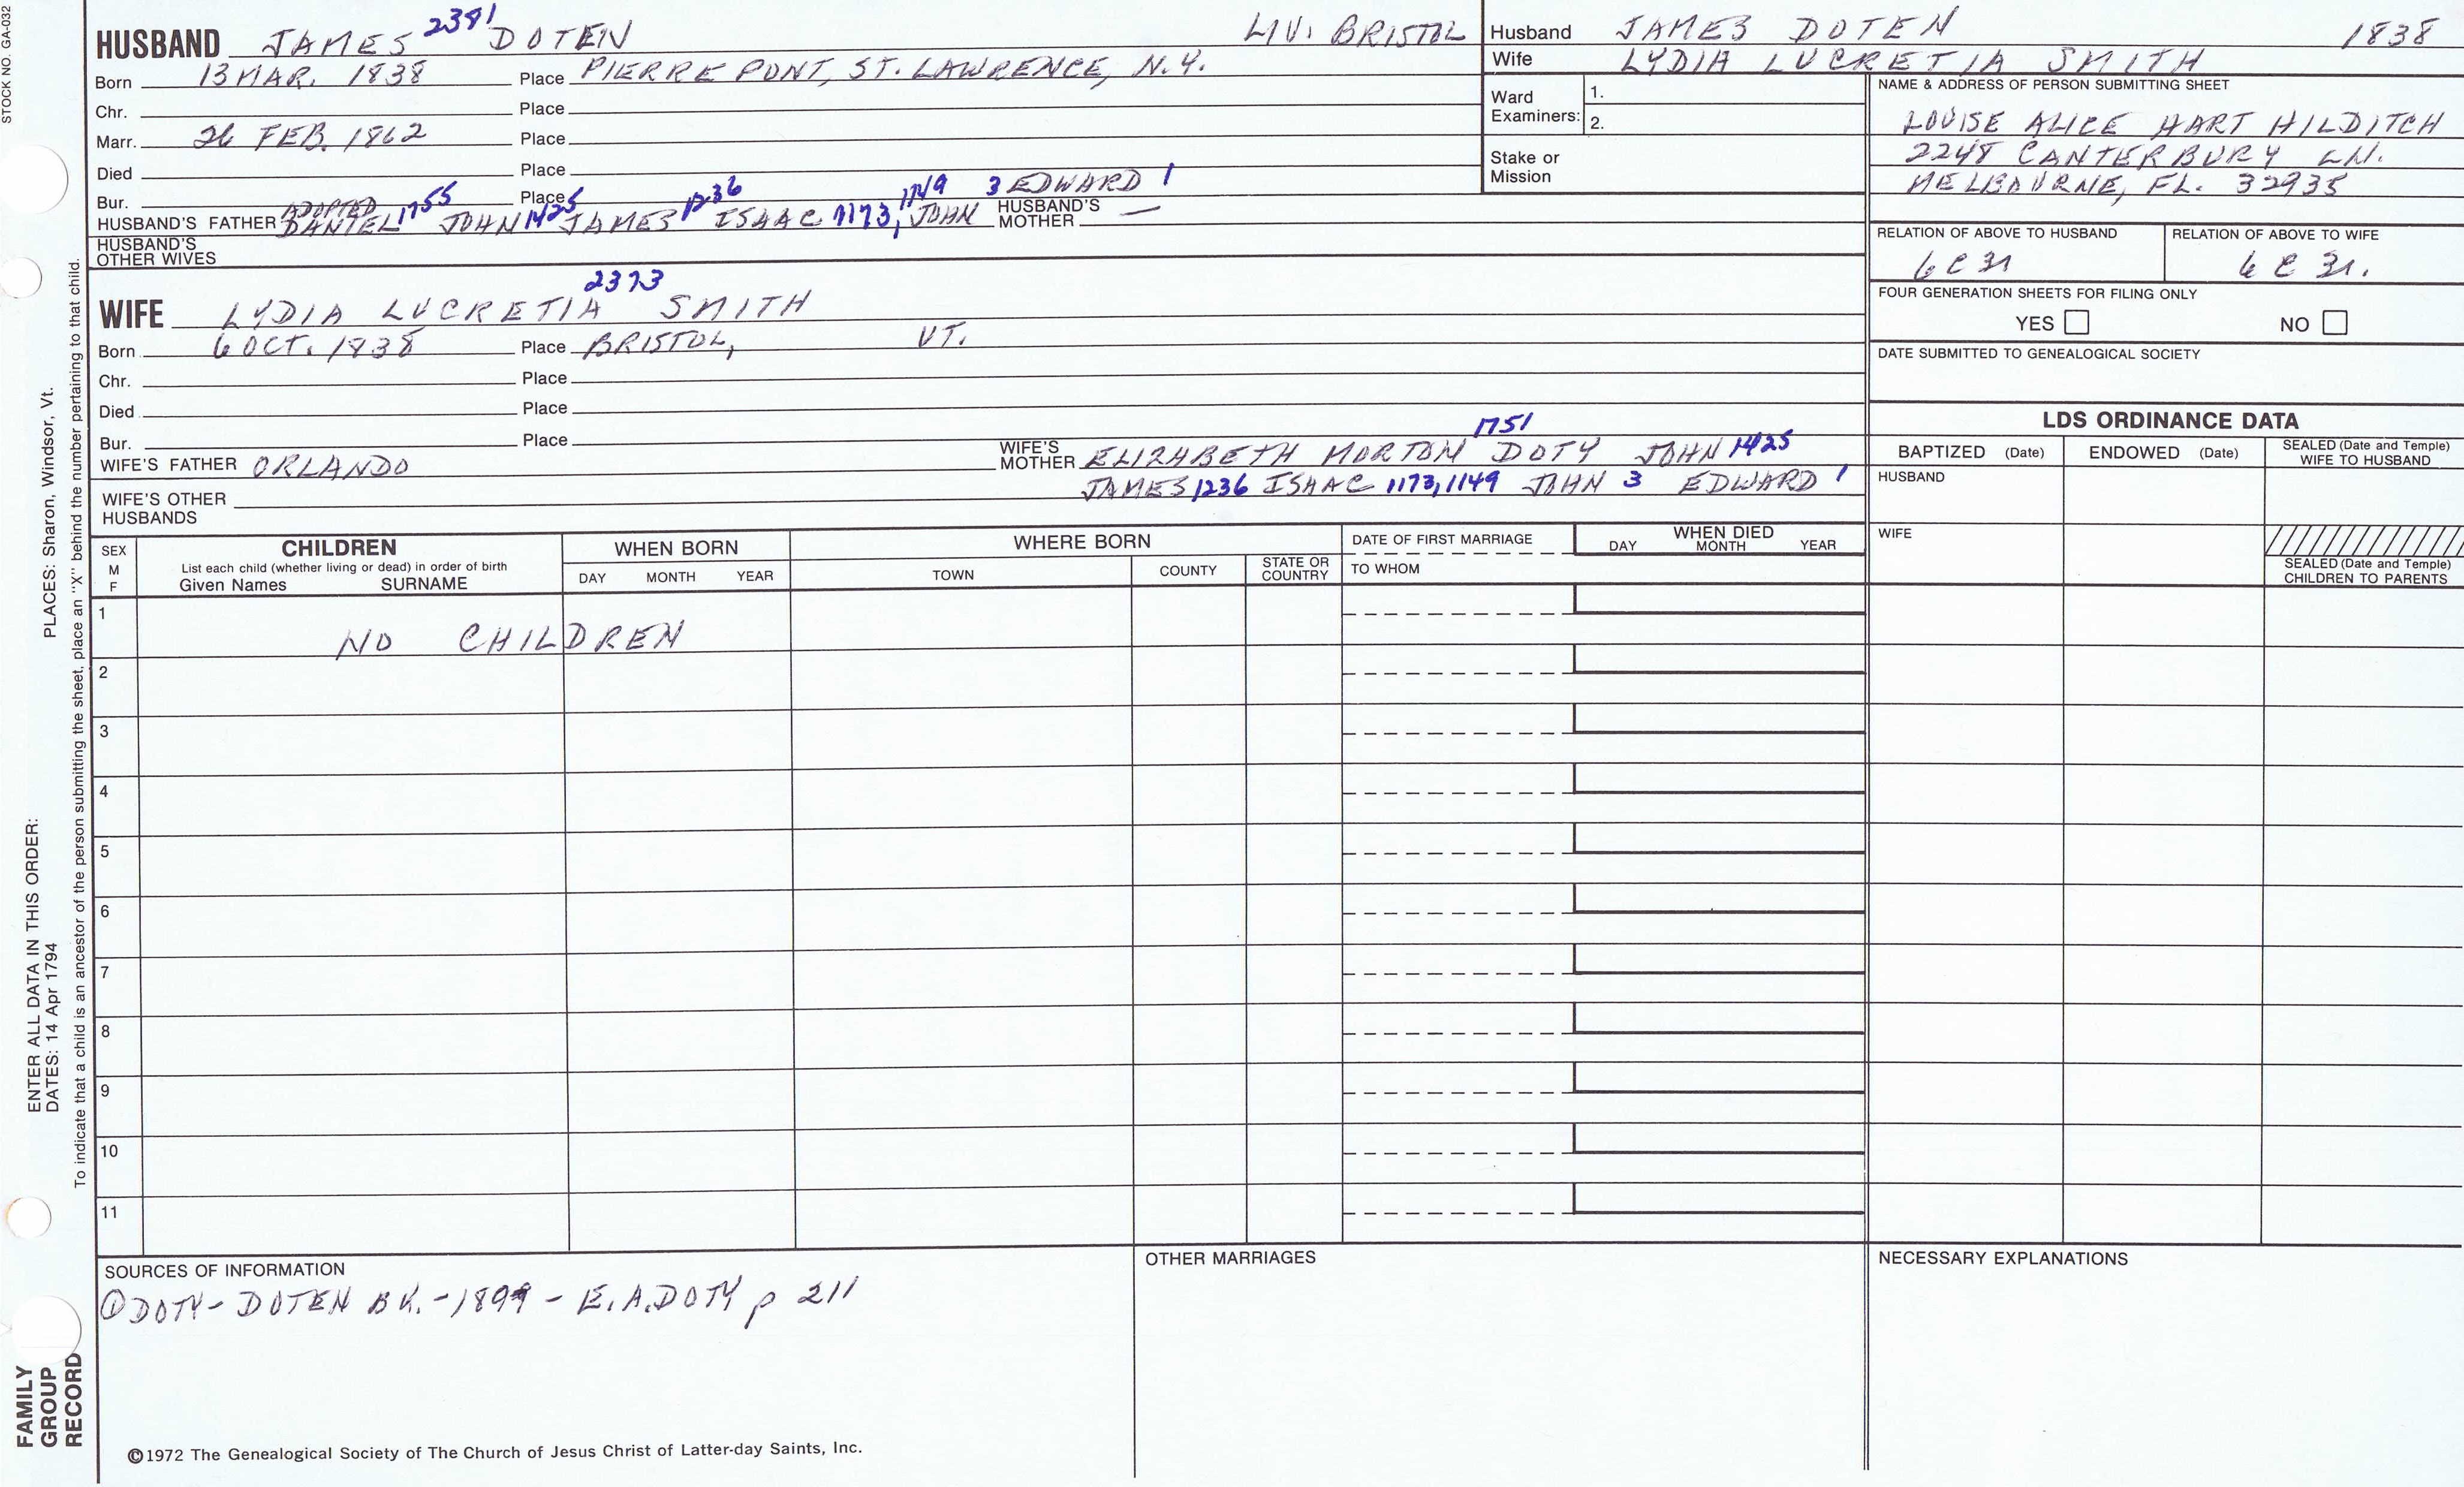 STOCK NO. GA-032
HUSBAND JAMES 2381 DOTEN LIV. BRISTOL
Born 13 MAR. 1838 Place PIERREPONT, ST. LAWRENCE, N.Y.
Chr. Place
Marr. 26 FEB. 1862 Place
Died Place
Bur. Place
HUSBAND'S FATHER ADOPTED DANIEL 1755 JOHN 1425 JAMES 1236 ISAAC 1173, 1149 JOHN 3 EDWARD 1 HUSBAND'S MOTHER —
HUSBAND'S OTHER WIVES
Husband JAMES DOTEN 1838
Wife LYDIA LUCRETIA SMITH
Ward Examiners: 1.
2.
Stake or Mission
NAME & ADDRESS OF PERSON SUBMITTING SHEET
LOUISE ALICE HART HILDITCH
2248 CANTERBURY LN.
MELBOURNE, FL. 32935
RELATION OF ABOVE TO HUSBAND RELATION OF ABOVE TO WIFE
6C 3R 6C 3R.
FOUR GENERATION SHEETS FOR FILING ONLY
YES NO
DATE SUBMITTED TO GENEALOGICAL SOCIETY
WIFE LYDIA LUCRETIA 2373 SMITH
Born 6 OCT. 1838 Place BRISTOL, VT.
Chr. Place
Died Place
Bur. Place
WIFE'S FATHER ORLANDO WIFE'S MOTHER ELIZABETH MORTON 1751 DOTY JOHN 1425
JAMES 1236 ISAAC 1173, 1149 JOHN 3 EDWARD 1
WIFE'S OTHER HUSBANDS
LDS ORDINANCE DATA
BAPTIZED (Date) ENDOWED (Date) SEALED (Date and Temple) WIFE TO HUSBAND
HUSBAND
WIFE
SEALED (Date and Temple) CHILDREN TO PARENTS
SEX M F
CHILDREN
List each child (whether living or dead) in order of birth
Given Names SURNAME
WHEN BORN
DAY MONTH YEAR
WHERE BORN
TOWN COUNTY STATE OR COUNTRY
DATE OF FIRST MARRIAGE
TO WHOM
WHEN DIED
DAY MONTH YEAR
1 NO CHILDREN
2
3
4
5
6
7
8
9
10
11
SOURCES OF INFORMATION
① DOTY-DOTEN BK.-1897 - E.A. DOTY p 211
OTHER MARRIAGES
NECESSARY EXPLANATIONS
©1972 The Genealogical Society of The Church of Jesus Christ of Latter-day Saints, Inc.
FAMILY
GROUP
RECORD
ENTER ALL DATA IN THIS ORDER:
DATES: 14 Apr 1794 PLACES: Sharon, Windsor, Vt.
To indicate that a child is an ancestor of the person submitting the sheet, place an "X" behind the number pertaining to that child.